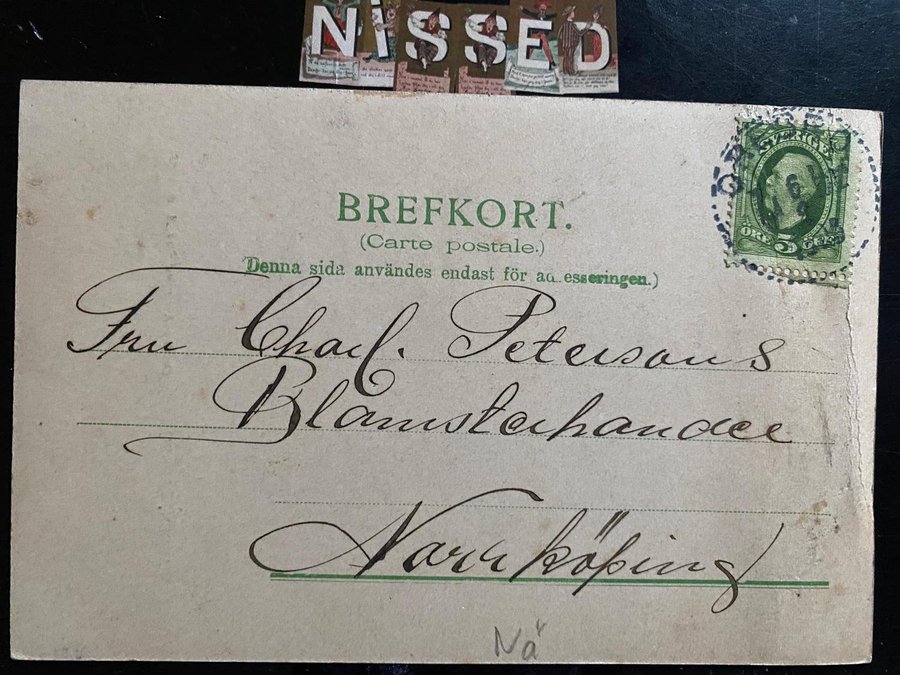 NISSED
BREFKORT.
(Carte postale.)
(Denna sida användes endast för ad esseringen.)
Fru Charl. Petersons
Blomsterhandel
Norrköping
SVERIGE
6
ÖRE 5
Nä